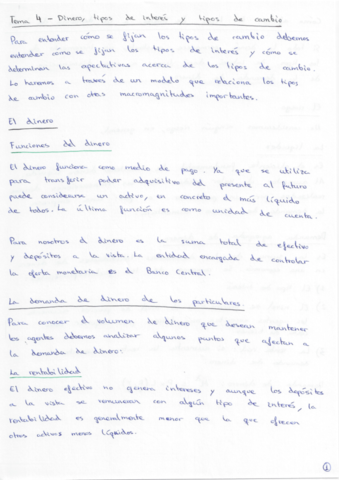 Tema 4 - Dinero, tipos de interés y tipos de cambio
Para entender cómo se fijan los tipos de cambio debemos
entender cómo se fijan los tipos de interés y cómo se
determinan las expectativas acerca de los tipos de cambio.
Lo haremos a través de un modelo que relaciona los tipos
de cambio con otras macromagnitudes importantes.
El dinero
Funciones del dinero
El dinero funciona como medio de pago. Ya que se utiliza
para transferir poder adquisitivo del presente al futuro
puede considerarse un activo, en concreto el más líquido
de todos. La última función es como unidad de cuenta.
Para nosotros el dinero es la suma total de efectivo
y depósitos a la vista. La entidad encargada de controlar
la oferta monetaria es el Banco Central.
La demanda de dinero de los particulares
Para conocer el volumen de dinero que desean mantener
los agentes debemos analizar algunos puntos que afectan a
la demanda de dinero:
La rentabilidad
El dinero efectivo no genera intereses y aunque los depósitos
a la vista se remuneran con algún tipo de interés, la
rentabilidad es generalmente menor que la que ofrecen
otros activos menos líquidos.
1